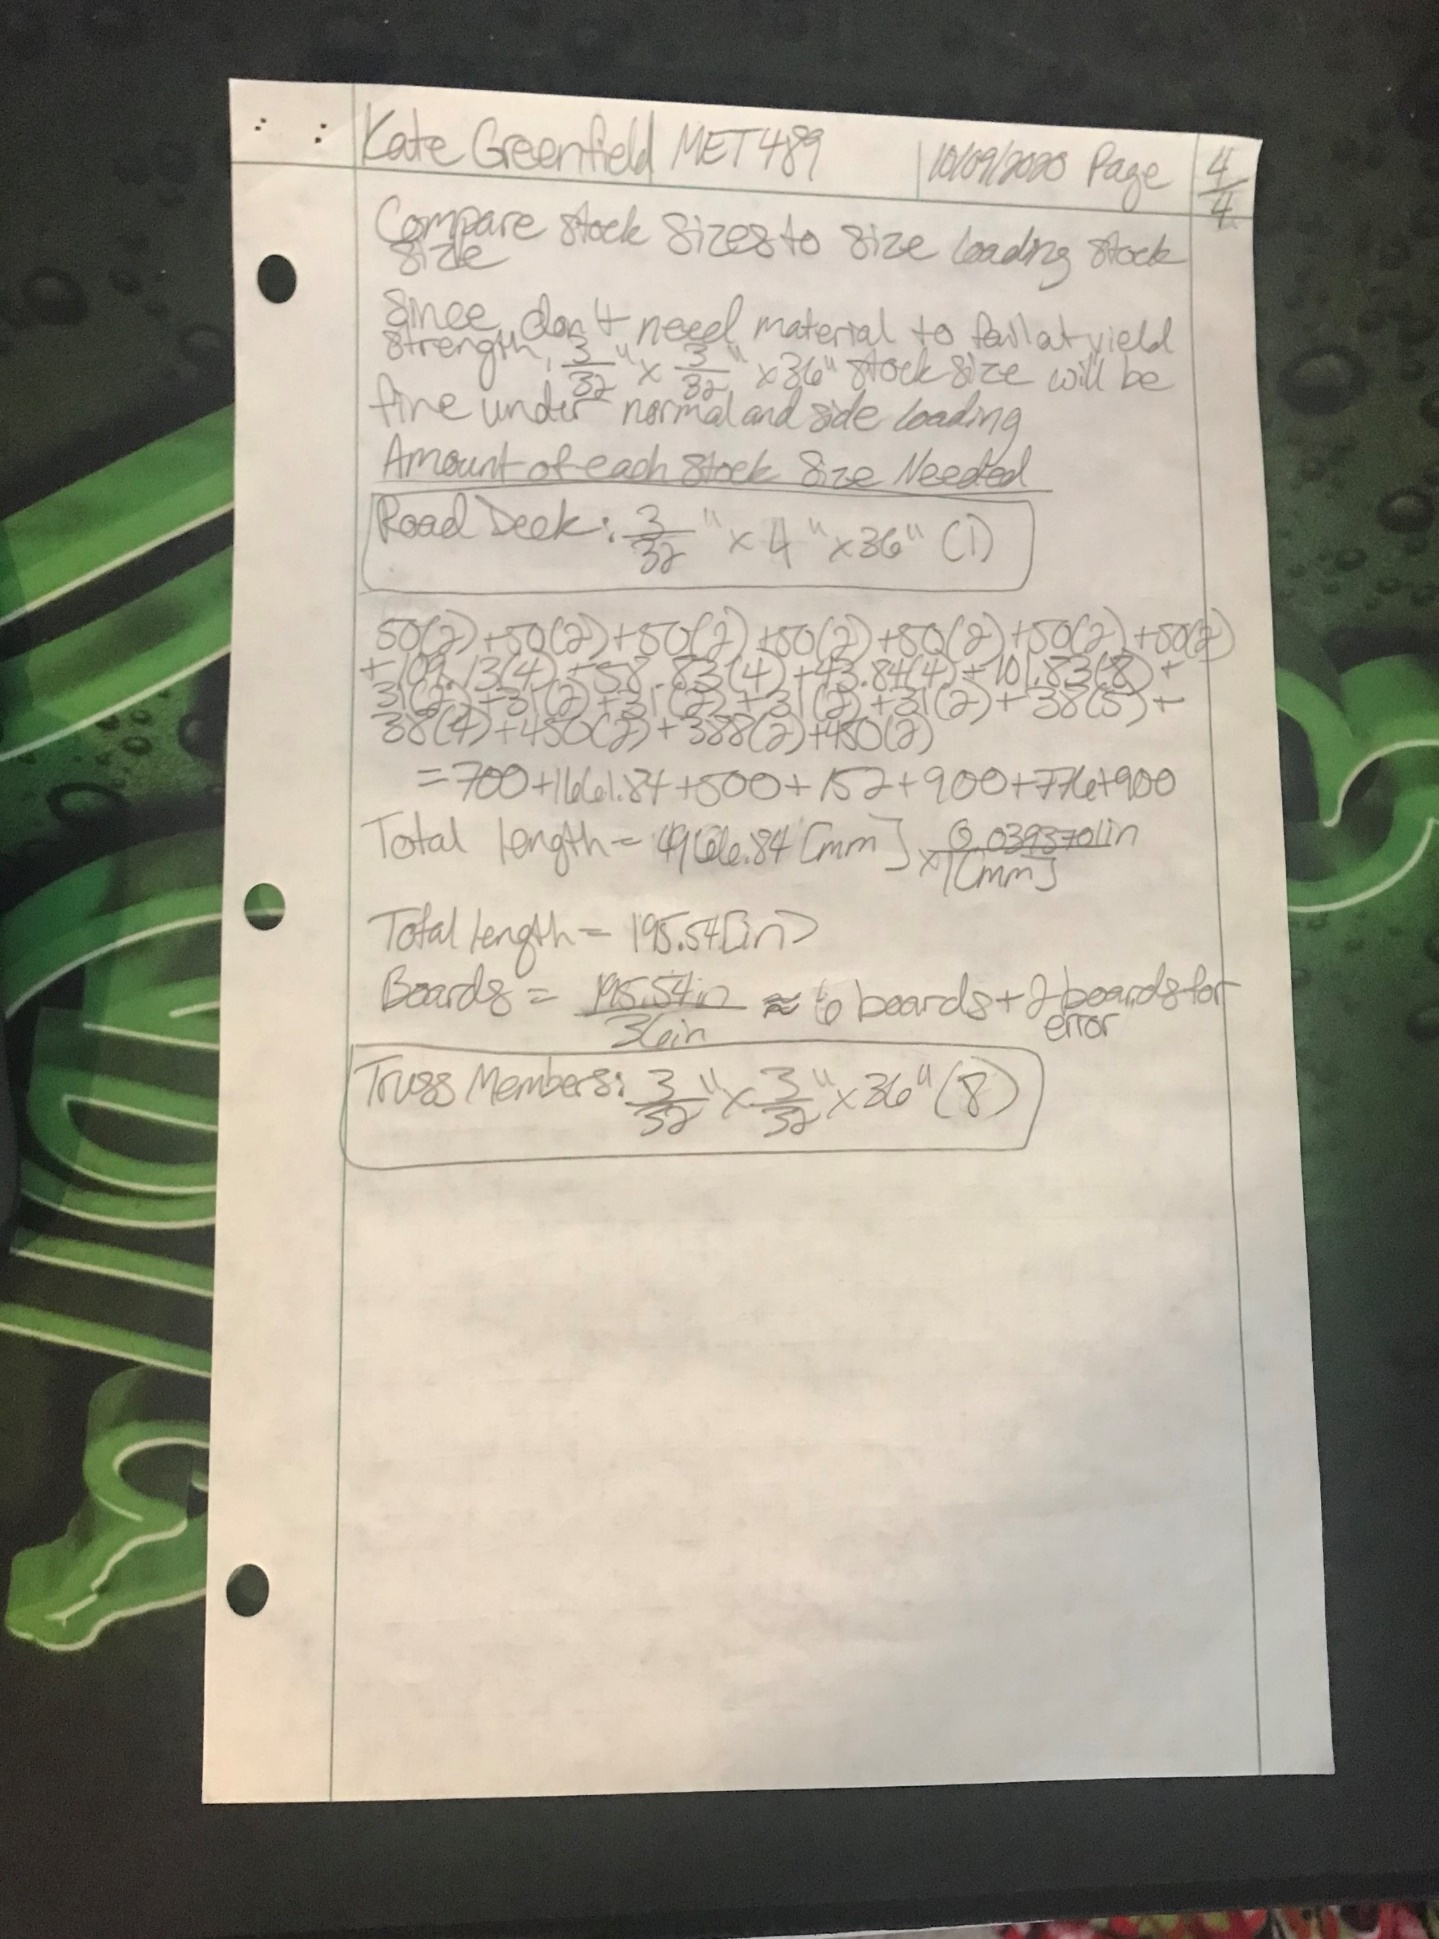 Kate Greenfield MET 489 10/09/2020 Page 4/4
Compare stock sizes to size loading stock
size
Since don't need material to fail at yield
strength, 3/32" x 3/32" x 36" stock size will be
fine under normal and side loading
Amount of each Stock Size Needed
Road Deck: 3/32" x 4" x 36" (1)
50(2)+50(2)+50(2)+50(2)+50(2)+50(2)+50(2)
+109.13(4)+58.83(4)+43.84(4)+101.83(8)+
31(2)+31(2)+31(2)+31(2)+31(2)+38(5)+
38(4)+450(2)+388(2)+450(2)
=700+1661.84+500+152+900+776+900
Total length= 4966.84 [mm] x 0.0393701in/1[mm]
Total length= 195.54[in]
Boards = 195.54in/36in ≈ 6 boards + 2 boards for
error
Truss Members: 3/32" x 3/32" x 36" (8)